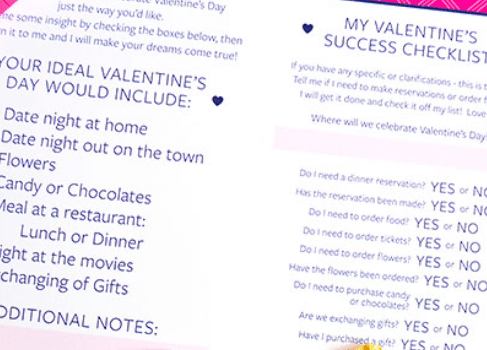 Valentine's Day
just the way you'd like.
me some insight by checking the boxes below, then
it to me and I will make your dreams come true!
YOUR IDEAL VALENTINE'S
DAY WOULD INCLUDE:
Date night at home
Date night out on the town
Flowers
Candy or Chocolates
Meal at a restaurant:
Lunch or Dinner
ight at the movies
xchanging of Gifts
ADDITIONAL NOTES:
MY VALENTINE'S
SUCCESS CHECKLIST
If you have any specific or clarifications - this is t
Tell me if I need to make reservations or order f
I will get it done and check it off my list! Love
Where will we celebrate Valentine's Day?
Do I need a dinner reservation? YES or NO
Has the reservation been made? YES or NO
Do I need to order food? YES or NO
Do I need to order tickets? YES or NO
Do I need to order flowers? YES or NO
Have the flowers been ordered? YES or NO
Do I need to purchase candy
or chocolates? YES or NO
Are we exchanging gifts? YES or NO
Have I purchased a gift? YES or NO